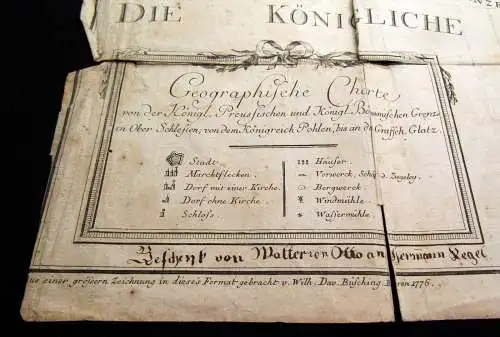 DIE KÖNIGLICHE
Geographische Charte
von der Königl. Preussischen und Königl. Böhmischen Grenze
in Ober Schlesien, von dem Königreich Pohlen, bis an die Graffch. Glatz.
Stadt.
Marcktflecken.
Dorf mit einer Kirche.
Dorf ohne Kirche.
Schloss.
Häuser.
Vorwerck, Schäf. Ziegeley.
Bergwerck.
Windmühle.
Wassermühle.
Geschenk von Walter Otto an Hermann
aus einer grössern Zeichnung in dieses Format gebracht v. Wilh. Dav. Büsching. 1776.